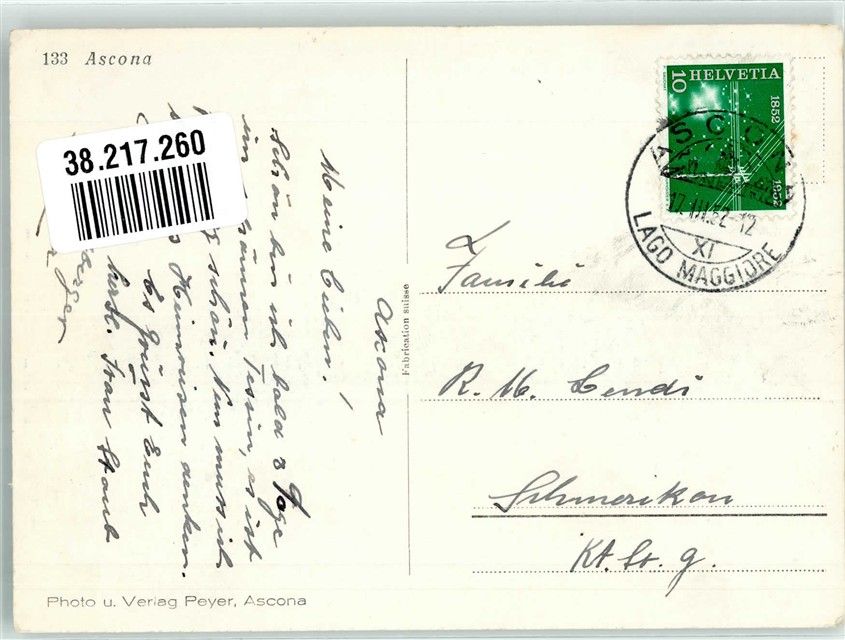 133 Ascona
38.217.260
Ascona
Meine Lieben!
Schön bin ich bald 3 Tage
im Tessin, es ist
schön. Nun muss ich
Heimreisen denken.
Es grüsst Euch
herzl. Frau Staub
Fabrication suisse
Photo u. Verlag Peyer, Ascona
HELVETIA
10
1852
1952
ASCONA
17.III.52-12
XI
LAGO MAGGIORE
Familie
R. M.
Schmerikon
Kt. St. g.